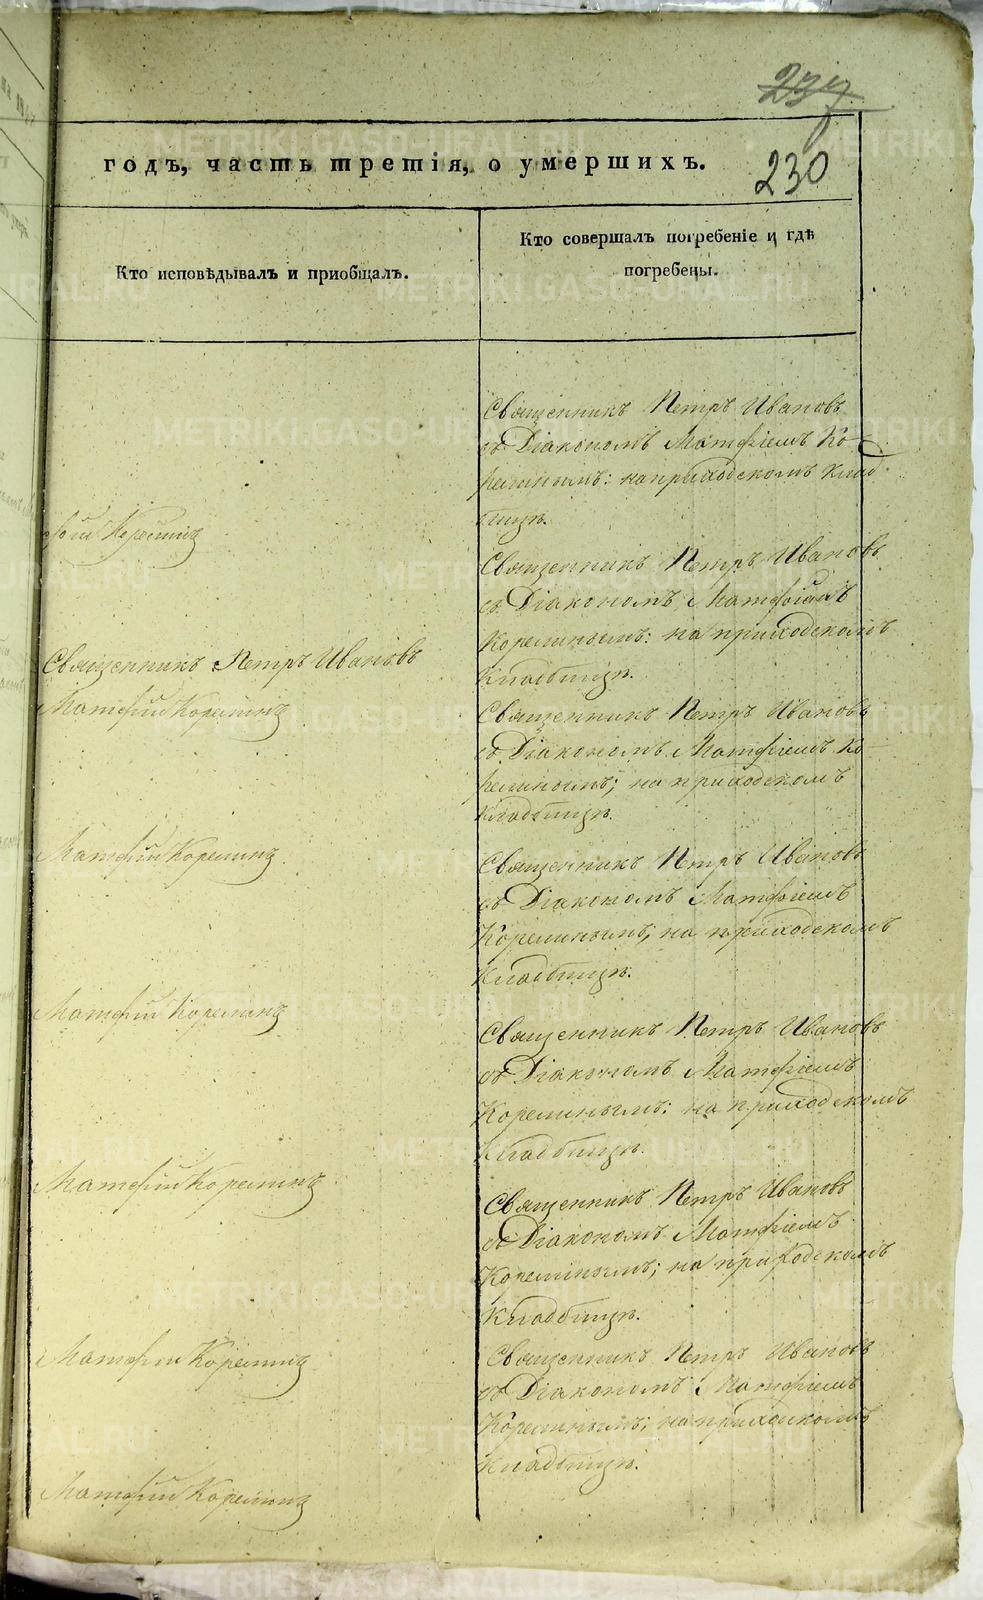 237
годъ, часть третія, о умершихъ.
230
Кто исповѣдывалъ и приобщалъ.
Кто совершалъ погребеніе и гдѣ
погребены.
Священникъ Петръ Ивановъ
съ Діакономъ Матфіемъ Ко-
релинымъ: на приходскомъ клад-
бищѣ.
фій Корелинъ
Священникъ Петръ Ивановъ
съ Діакономъ Матфіемъ
Корелинымъ: на приходскомъ
Кладбищѣ.
Священникъ Петръ Ивановъ
Матфій Корелинъ
Священникъ Петръ Ивановъ
съ Діакономъ Матфіемъ Ко-
релинымъ; на приходскомъ
кладбищѣ.
Матфій Корелинъ.
Священникъ Петръ Ивановъ
съ Діакономъ Матфіемъ
Корелинымъ; на приходскомъ
Кладбищѣ.
Матфій Корелинъ
Священникъ Петръ Ивановъ
съ Діакономъ Матфіемъ
Корелинымъ: на приходскомъ
Кладбищѣ.
Матфій Корелинъ
Священникъ Петръ Ивановъ
съ Діакономъ Матфіемъ
Корелинымъ; на приходскомъ
Кладбищѣ.
Матфій Корелинъ
Священникъ Петръ Ивановъ
съ Діакономъ Матфіемъ
Корелинымъ; на приходскомъ
Кладбищѣ.
Матфій Корелинъ
METRIKI.GASO-URAL.RU